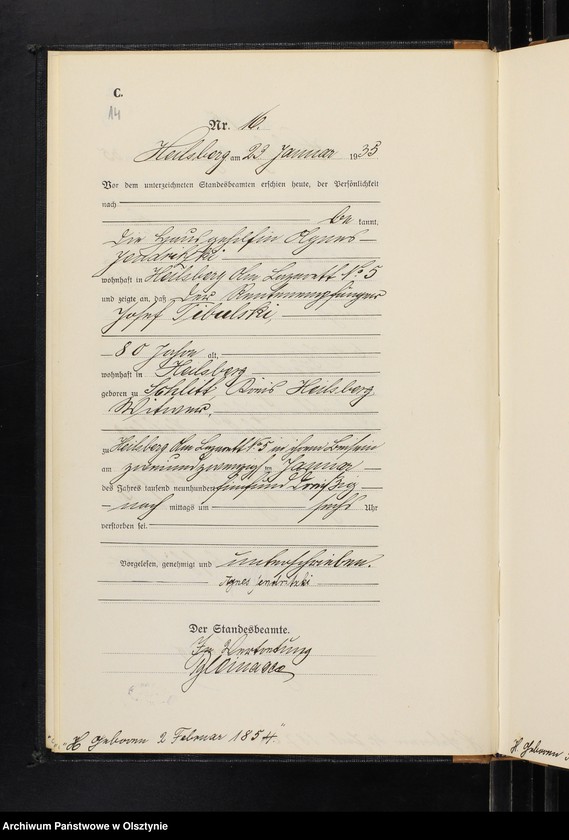 C.
14
Nr. 16.
Heilsberg am 23 Januar 1935
Vor dem unterzeichneten Standesbeamten erschien heute, der Persönlichkeit
nach
be kannt,
die Hausgehilfin Agnes
Jendritzki
wohnhaft in Heilsberg Am Lazarett No 5
und zeigte an, daß der Rentenempfänger
Josef Tibulski,
80 Jahre alt,
wohnhaft in Heilsberg
geboren zu Schlitt, Kreis Heilsberg
Witwer,
zu Heilsberg Am Lazarett No 5 in ihrem Beisein
am zweiundzwanzig ten Januar
des Jahres tausend neunhundert fünfunddreißig
nach mittags um sechs Uhr
verstorben sei.
Vorgelesen, genehmigt und unterschrieben.
Agnes Jendritzki
Der Standesbeamte.
In Vertretung
H. Geboren 2 Februar 1854."
H. Geboren
Archiwum Państwowe w Olsztynie